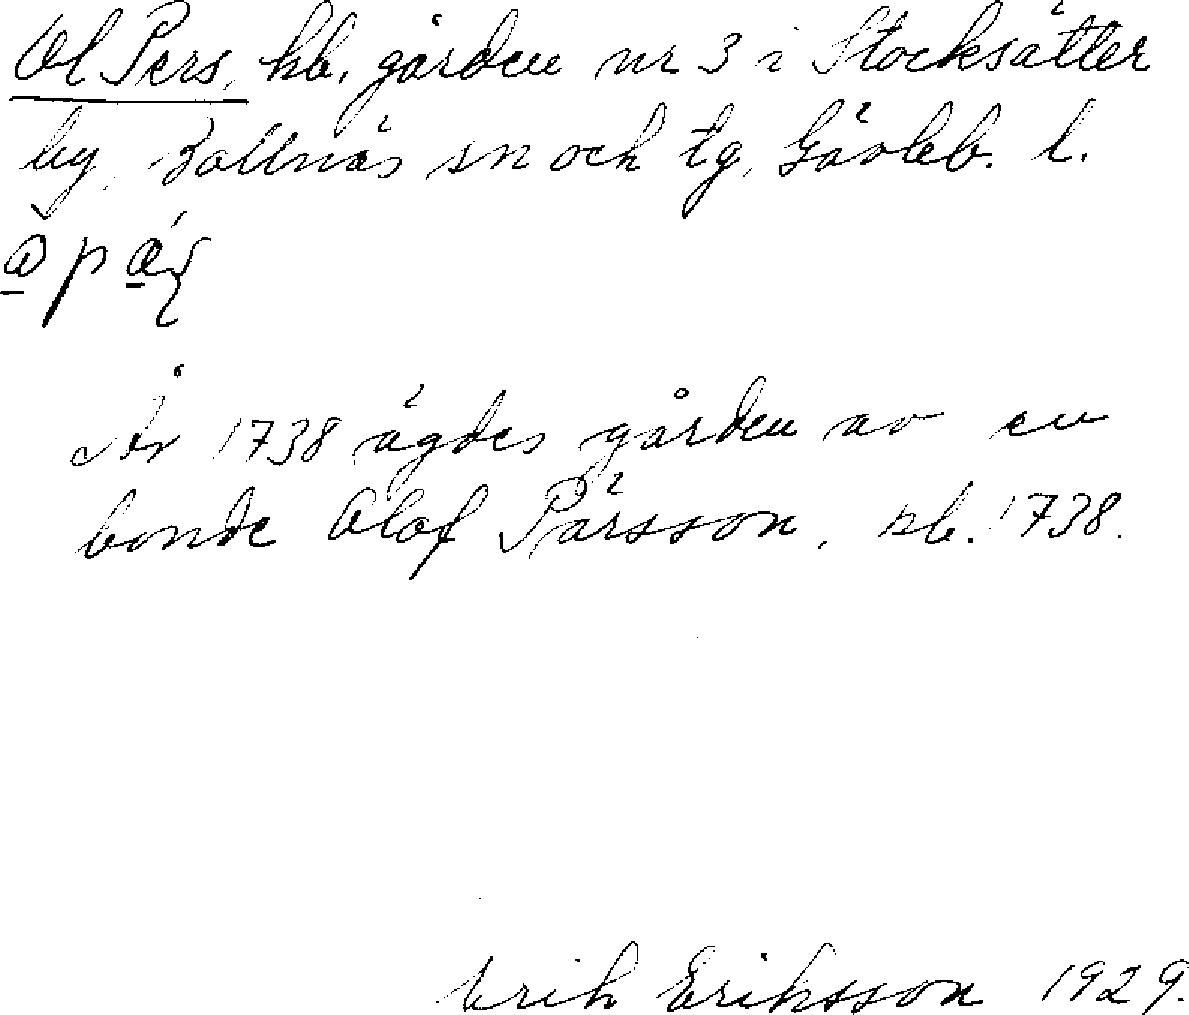 Ol Pers, hb. gården nr 3 i Stocksätter
by, Bollnäs sn och tg, Gävleb. l.
År 1738 ägdes gården av en
bonde Olof Pärsson, kb. 1738.
Erik Eriksson 1929.